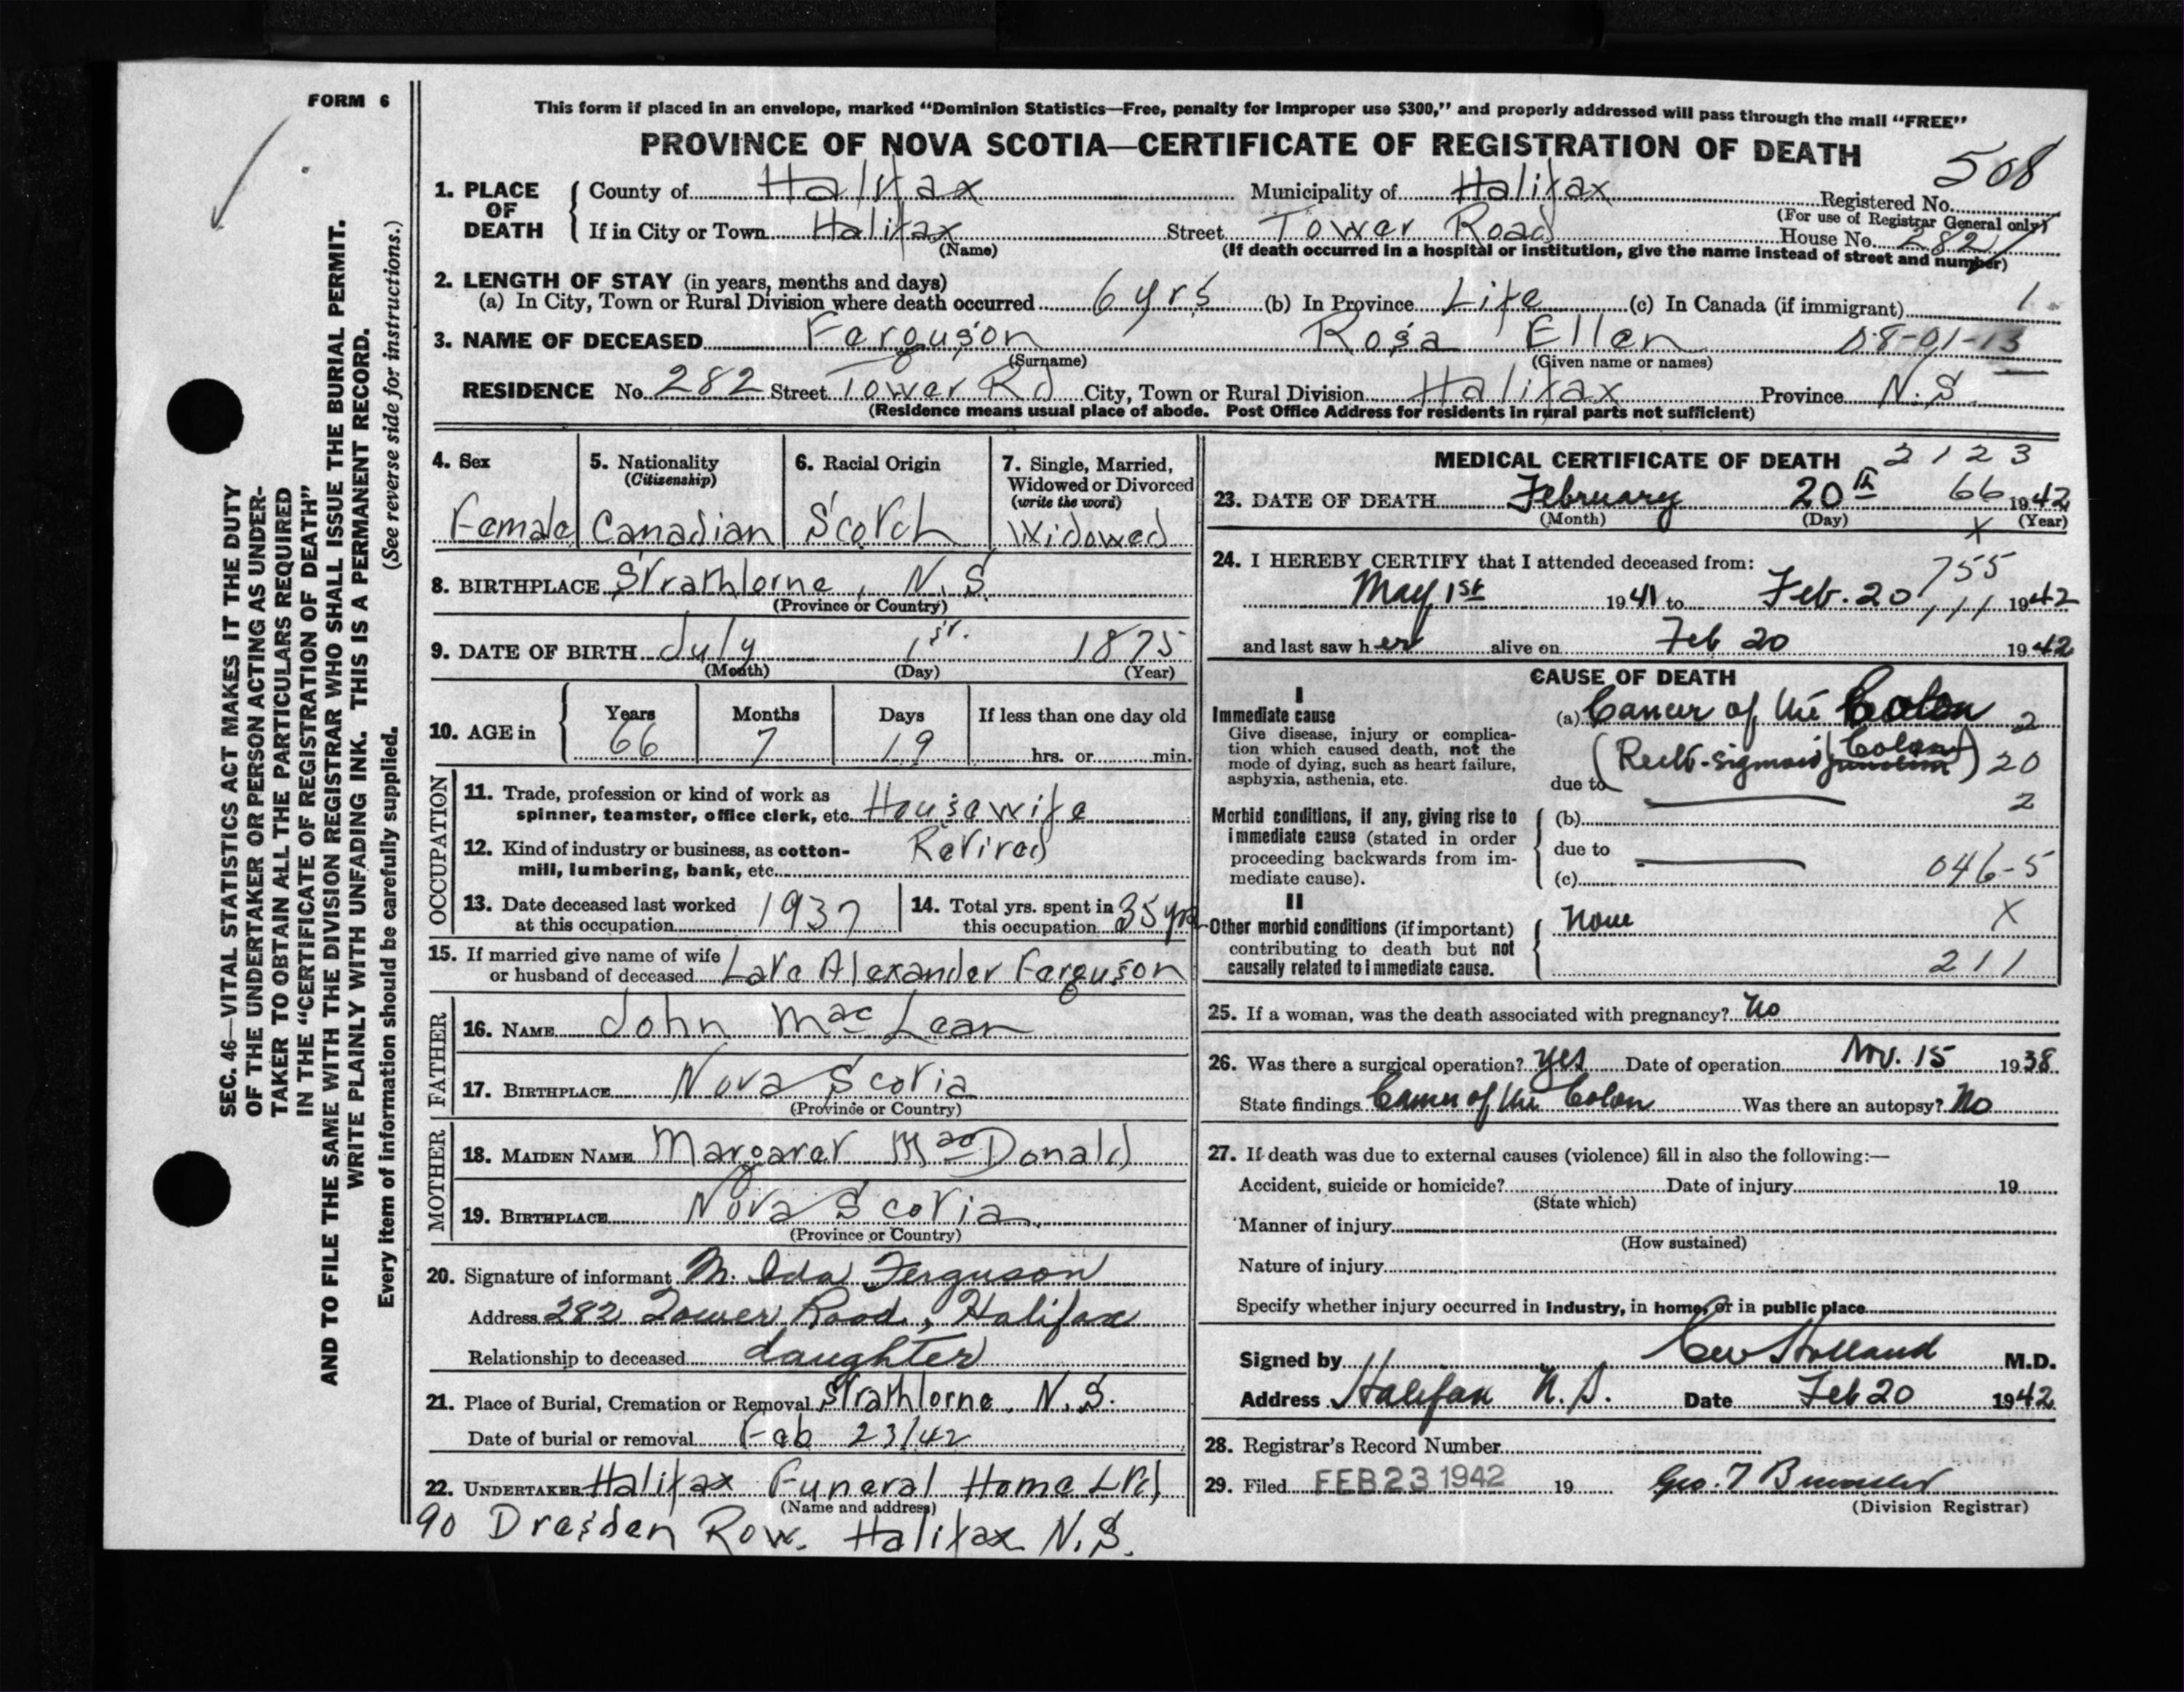 FORM 6
This form if placed in an envelope, marked "Dominion Statistics—Free, penalty for improper use $300," and properly addressed will pass through the mail "FREE"
PROVINCE OF NOVA SCOTIA—CERTIFICATE OF REGISTRATION OF DEATH
508
1. PLACE OF DEATH
County of Halifax Municipality of Halifax Registered No.
(For use of Registrar General only)
If in City or Town Halifax Street Tower Road House No. 282
(Name) (If death occurred in a hospital or institution, give the name instead of street and number)
2. LENGTH OF STAY (in years, months and days)
(a) In City, Town or Rural Division where death occurred 6 yrs (b) In Province Life (c) In Canada (if immigrant) 1
3. NAME OF DECEASED Ferguson Rosa Ellen 08-01-13
(Surname) (Given name or names)
RESIDENCE No. 282 Street Tower Rd City, Town or Rural Division Halifax Province N.S.
(Residence means usual place of abode. Post Office Address for residents in rural parts not sufficient)
4. Sex
Female
5. Nationality
(Citizenship)
Canadian
6. Racial Origin
Scotch
7. Single, Married,
Widowed or Divorced
(write the word)
Widowed
8. BIRTHPLACE Strathlorne, N.S.
(Province or Country)
9. DATE OF BIRTH July 1st. 1875
(Month) (Day) (Year)
10. AGE in
Years Months Days If less than one day old
66 7 19 hrs. or min.
OCCUPATION
11. Trade, profession or kind of work as
spinner, teamster, office clerk, etc. Housewife
12. Kind of industry or business, as cotton- Retired
mill, lumbering, bank, etc.
13. Date deceased last worked
at this occupation 1937
14. Total yrs. spent in
this occupation 35 yrs
15. If married give name of wife
or husband of deceased Late Alexander Ferguson
FATHER
16. NAME John MacLean
17. BIRTHPLACE Nova Scotia
(Province or Country)
MOTHER
18. MAIDEN NAME Margaret MacDonald
19. BIRTHPLACE Nova Scotia
(Province or Country)
20. Signature of informant M. Ida Ferguson
Address 282 Tower Road, Halifax
Relationship to deceased daughter
21. Place of Burial, Cremation or Removal Strathlorne, N.S.
Date of burial or removal Feb 23/42
22. UNDERTAKER Halifax Funeral Home Ltd
(Name and address)
90 Dresden Row. Halifax N.S.
MEDICAL CERTIFICATE OF DEATH 2123
23. DATE OF DEATH February 20th 66 1942
(Month) (Day) X (Year)
24. I HEREBY CERTIFY that I attended deceased from: 755
May 1st 1941 to Feb. 20 111 1942
and last saw her alive on Feb 20 1942
CAUSE OF DEATH
I
Immediate cause
Give disease, injury or complica-
tion which caused death, not the
mode of dying, such as heart failure,
asphyxia, asthenia, etc.
(a) Cancer of the Colon 2
(Recto-sigmoid junction Colon) 20
due to
2
Morbid conditions, if any, giving rise to
immediate cause (stated in order
proceeding backwards from im-
mediate cause).
(b)
due to
(c) 046-5
II
Other morbid conditions (if important)
contributing to death but not
causally related to immediate cause.
None X
211
25. If a woman, was the death associated with pregnancy? No
26. Was there a surgical operation? Yes Date of operation Nov. 15 1938
State findings Cancer of the Colon Was there an autopsy? No
27. If death was due to external causes (violence) fill in also the following:—
Accident, suicide or homicide? Date of injury 19
(State which)
Manner of injury
(How sustained)
Nature of injury
Specify whether injury occurred in industry, in home, or in public place
Signed by Holland M.D.
Address Halifax N.S. Date Feb 20 1942
28. Registrar's Record Number
29. Filed FEB 23 1942 19 Geo. T
(Division Registrar)
SEC. 46—VITAL STATISTICS ACT MAKES IT THE DUTY
OF THE UNDERTAKER OR PERSON ACTING AS UNDER-
TAKER TO OBTAIN ALL THE PARTICULARS REQUIRED
IN THE "CERTIFICATE OF REGISTRATION OF DEATH"
AND TO FILE THE SAME WITH THE DIVISION REGISTRAR WHO SHALL ISSUE THE BURIAL PERMIT.
WRITE PLAINLY WITH UNFADING INK. THIS IS A PERMANENT RECORD.
Every item of information should be carefully supplied. (See reverse side for instructions.)